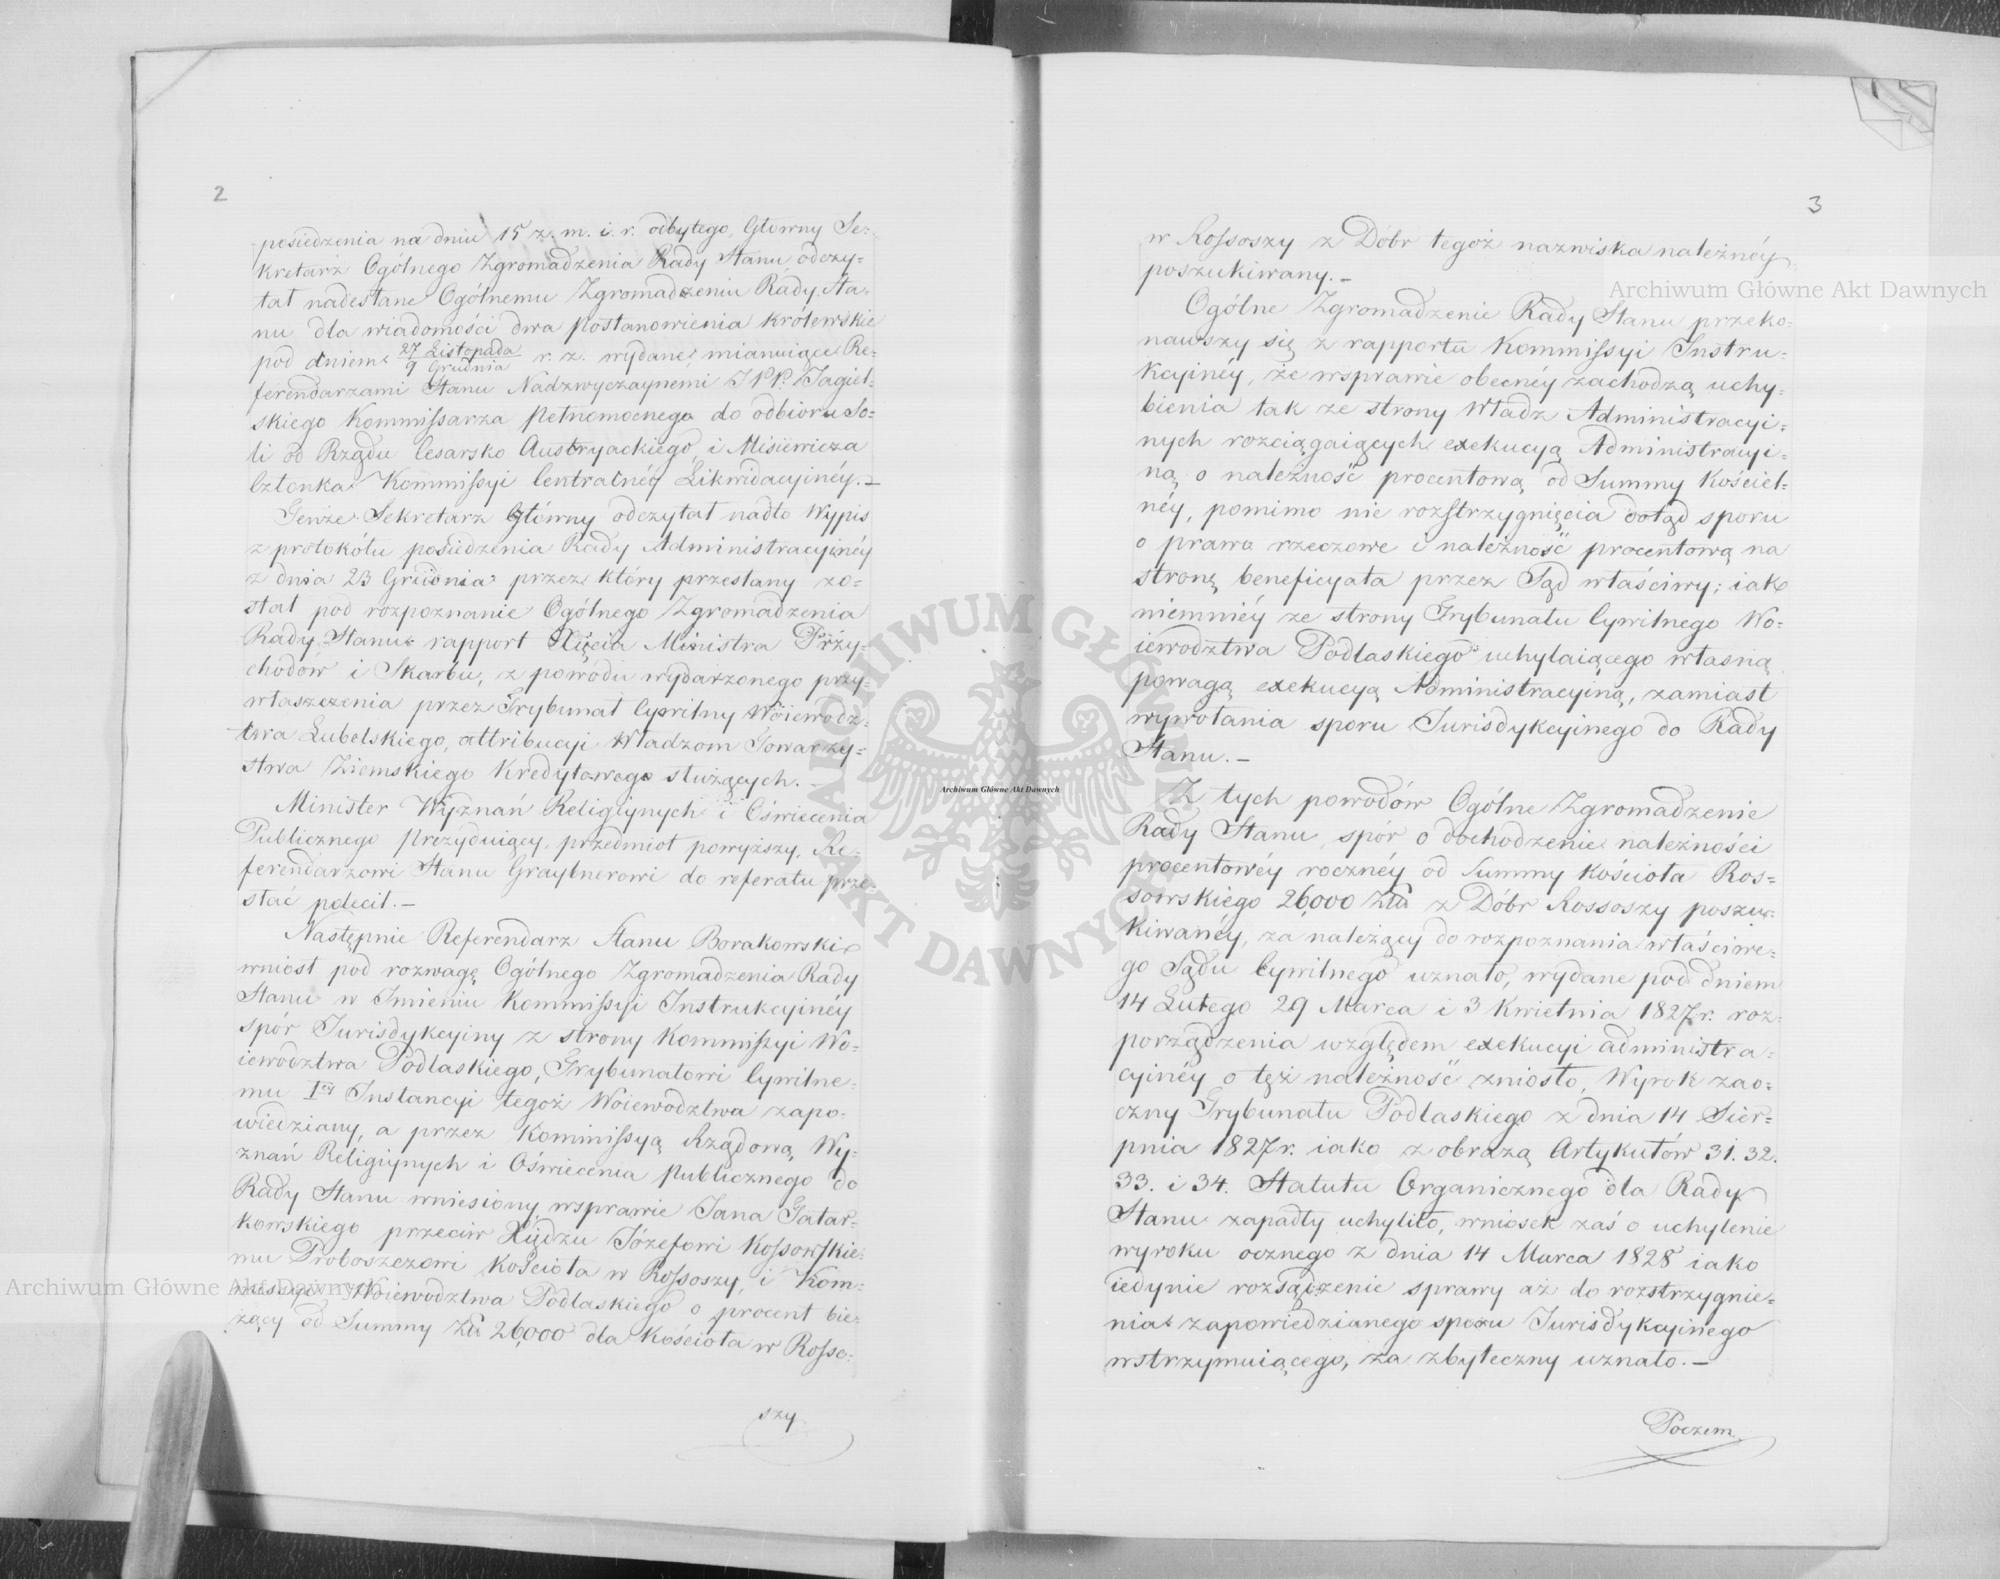 2
posiedzenia na dniu 15 z. m. i. r. odbytego, Główny Se-
kretarz Ogólnego Zgromadzenia Rady Stanu odczy-
tał nadesłane Ogólnemu Zgromadzeniu Rady Sta-
nu dla wiadomości dwa Postanowienia Królewskie
pod dniem 27 Listopada / 9 Grudnia r. z. wydane, mianuiące Re-
ferendarzami Stanu Nadzwyczaynemi JPP. Jagiel-
skiego Kommissarza Pełnomocnego do odbioru So-
li od Rządu Cesarsko Austryackiego, i Misiewicza
Członka Kommissyi Centralnéy Likwidacyinéy.—
Tenże Sekretarz Główny odczytał nadto Wypis
z protokółu posiedzenia Rady Administracyinéy
z dnia 23 Grudnia przez który przesłany zo-
stał pod rozpoznanie Ogólnego Zgromadzenia
Rady Stanu rapport Xięcia Ministra Przy-
chodów i Skarbu, z powodu wydarzonego przy-
właszczenia przez Trybunał Cywilny Woiewódz-
twa Lubelskiego, attribucyi Władzom Towarzy-
stwa Ziemskiego Kredytowego służących.—
Minister Wyznań Religiynych i Oświecenia
Publicznego Prezyduiący, przedmiot powyższy, Re-
ferendarzowi Stanu Graybnerowi do referatu prze-
słać polecił.—
Następnie Referendarz Stanu Borakowski
wniósł pod rozwagę Ogólnego Zgromadzenia Rady
Stanu w Imieniu Kommissyi Instrukcyinéy
spór Jurisdykcyiny z strony Kommissyi Wo-
iewództwa Podlaskiego, Trybunałowi Cywilne-
mu Iéy Instancyi tegoż Woiewództwa zapo-
wiedziany, a przez Kommissyą Rządową Wy-
znań Religiynych i Oświecenia Publicznego do
Rady Stanu wniesiony, w sprawie Jana Tatar-
kowskiego przeciw Xiędzu Józefowi Kossowskie-
mu Proboszczowi Kościoła w Rossoszy, i Kom-
missyi Woiewództwa Podlaskiego o procent bie-
żący od Summy Złł 26,000 dla Kościoła w Rosso-
szy
3
w Rossoszy z Dóbr tegoż nazwiska należnéy
poszukiwany.—
Ogólne Zgromadzenie Rady Stanu przeko-
nawszy się z rapportu Kommissyi Instru-
kcyinéy, że w sprawie obecnéy zachodzą uchy-
bienia tak ze strony Władz Administracyi-
nych rozciągaiących exekucyą Administracyi-
ną o należność procentową od Summy Kościel-
néy, pomimo nie rozstrzygnięcia dotąd sporu
o prawo rzeczowe i należność procentową na
stronę beneficyata przez Sąd właściwy; iako
niemniéy ze strony Trybunału Cywilnego Wo-
iewództwa Podlaskiego uchylaiącego własną
powagą exekucyą Administracyiną, zamiast
wywołania sporu Jurisdykcyinego do Rady
Stanu.—
Z tych powodów Ogólne Zgromadzenie
Rady Stanu, spór o dochodzenie należności
procentowéy rocznéy od Summy Kościoła Ros-
sowskiego 26,000 Złł z Dóbr Rossoszy poszu-
kiwanéy, za należący do rozpoznania właściwe-
go Sądu Cywilnego uznało, wydane pod dniem
14 Lutego 29 Marca i 3 Kwietnia 1827 r. roz-
porządzenia względem exekucyi administra-
cyinéy o też należność zniosło, Wyrok zao-
czny Trybunału Podlaskiego z dnia 14 Sier-
pnia 1827 r. iako z obrazą Artykułów 31. 32.
33. i 34. Statutu Organicznego dla Rady
Stanu zapadły uchyliło, wniosek zaś o uchylenie
wyroku ocznego z dnia 14 Marca 1828 iako
iedynie rozsądzenie sprawy aż do rozstrzygnie-
nia zapowiedzianego sporu Jurisdykcyinego
wstrzymuiącego, za zbyteczny uznało.—
Poczem
Archiwum Główne Akt Dawnych
Archiwum Główne Akt Dawnych
Archiwum Główne Akt Dawnych
ARCHIWUM GŁÓWNE AKT DAWNYCH